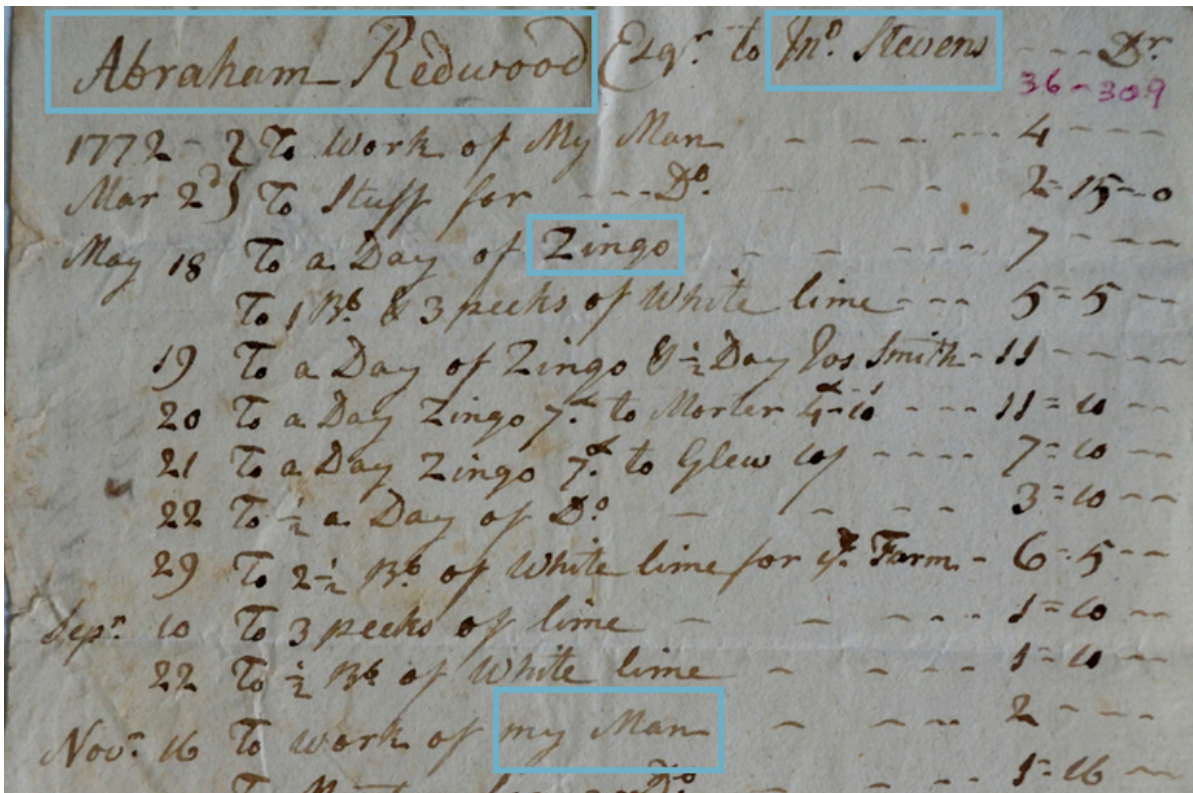 Abraham Redwood Esqr. to Jno. Stevens --- Dr.
36-309
1772 - To Work of My Man - - - - - 4 - - -
Mar 2d To Stuff for --- Do. - - - 2=15--0
May 18 To a Day of Zingo - - - - - - 7 - - -
To 1 Bs. & 3 peeks of White lime - - - 5=5 --
19 To a Day of Zingo & ½ Day Jos Smith - 11 - - - -
20 To a Day Zingo 7/. to Morter - - - - 11=10 --
21 To a Day Zingo 7/. to Glew 10/ - - - - 7=10 --
22 To ½ a Day of Do. - - - - - 3=10 --
29 To 2½ Bs. of White lime for ye. Farm - 6=5 --
Sepr. 10 To 3 peeks of lime - - - - - 1=10 --
22 To ½ Bs. of White lime - - - - - 1=10 --
Novr. 16 To work of my Man - - - - - 2 - - -
To Do. 1=16 --